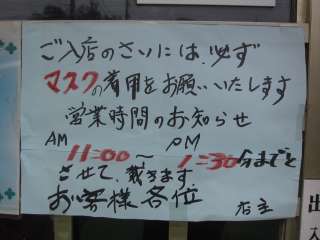 ご入店のさいには必ず
マスクの着用をお願いいたします
営業時間のお知らせ
AM PM
11:00〜1:30分までと
させて頂きます
お客様各位
店主
出
入